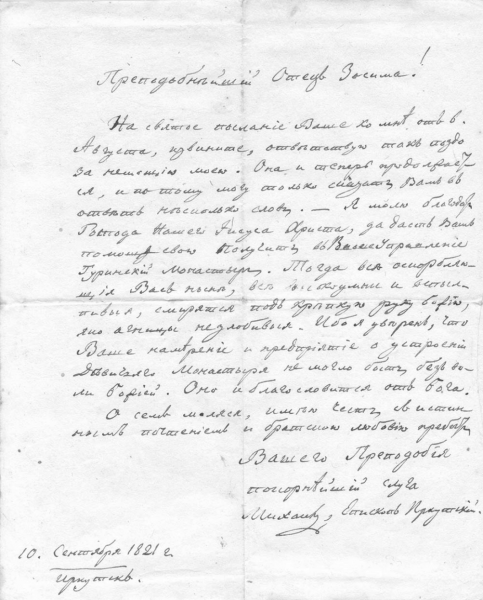 Преподобнѣйшій Отецъ Зосима!
На святое посланіе Ваше ко мнѣ отъ 6.
Августа, извините, отвѣтствую такъ поздо
за немощію моею. Она и теперь продолжает-
ся, и по тому могу только сказать Вамъ въ
отвѣтъ нѣсколько словъ. — Я молю благодар
Господа Нашего Іисуса Христа, да дастъ Вамъ
помощь свою получить въ Ваше Управленіе
Гуринскій Монастырь. Тогда всѣ оскорбляю-
щія Васъ нынѣ, всѣ и вспыль-
чивыя, смирятся подъ крѣпкую руку Божію,
яко агницы незлобивыя. Ибо я увѣренъ, что
Ваше намѣреніе и предпріятіе о устроеніи
Дѣвичяго Монастыря не могло быть безъ во-
ли Божіей. Оно и благословится отъ Бога.
О семъ моляся, имѣю честь съ истин-
нымъ почтеніемъ и братскою любовію пребыть
Вашего Преподобія
покорнѣйшій слуга
Михаилъ, Епископъ Иркутскій.
10. Сентября 1821 г.
Иркутскъ.